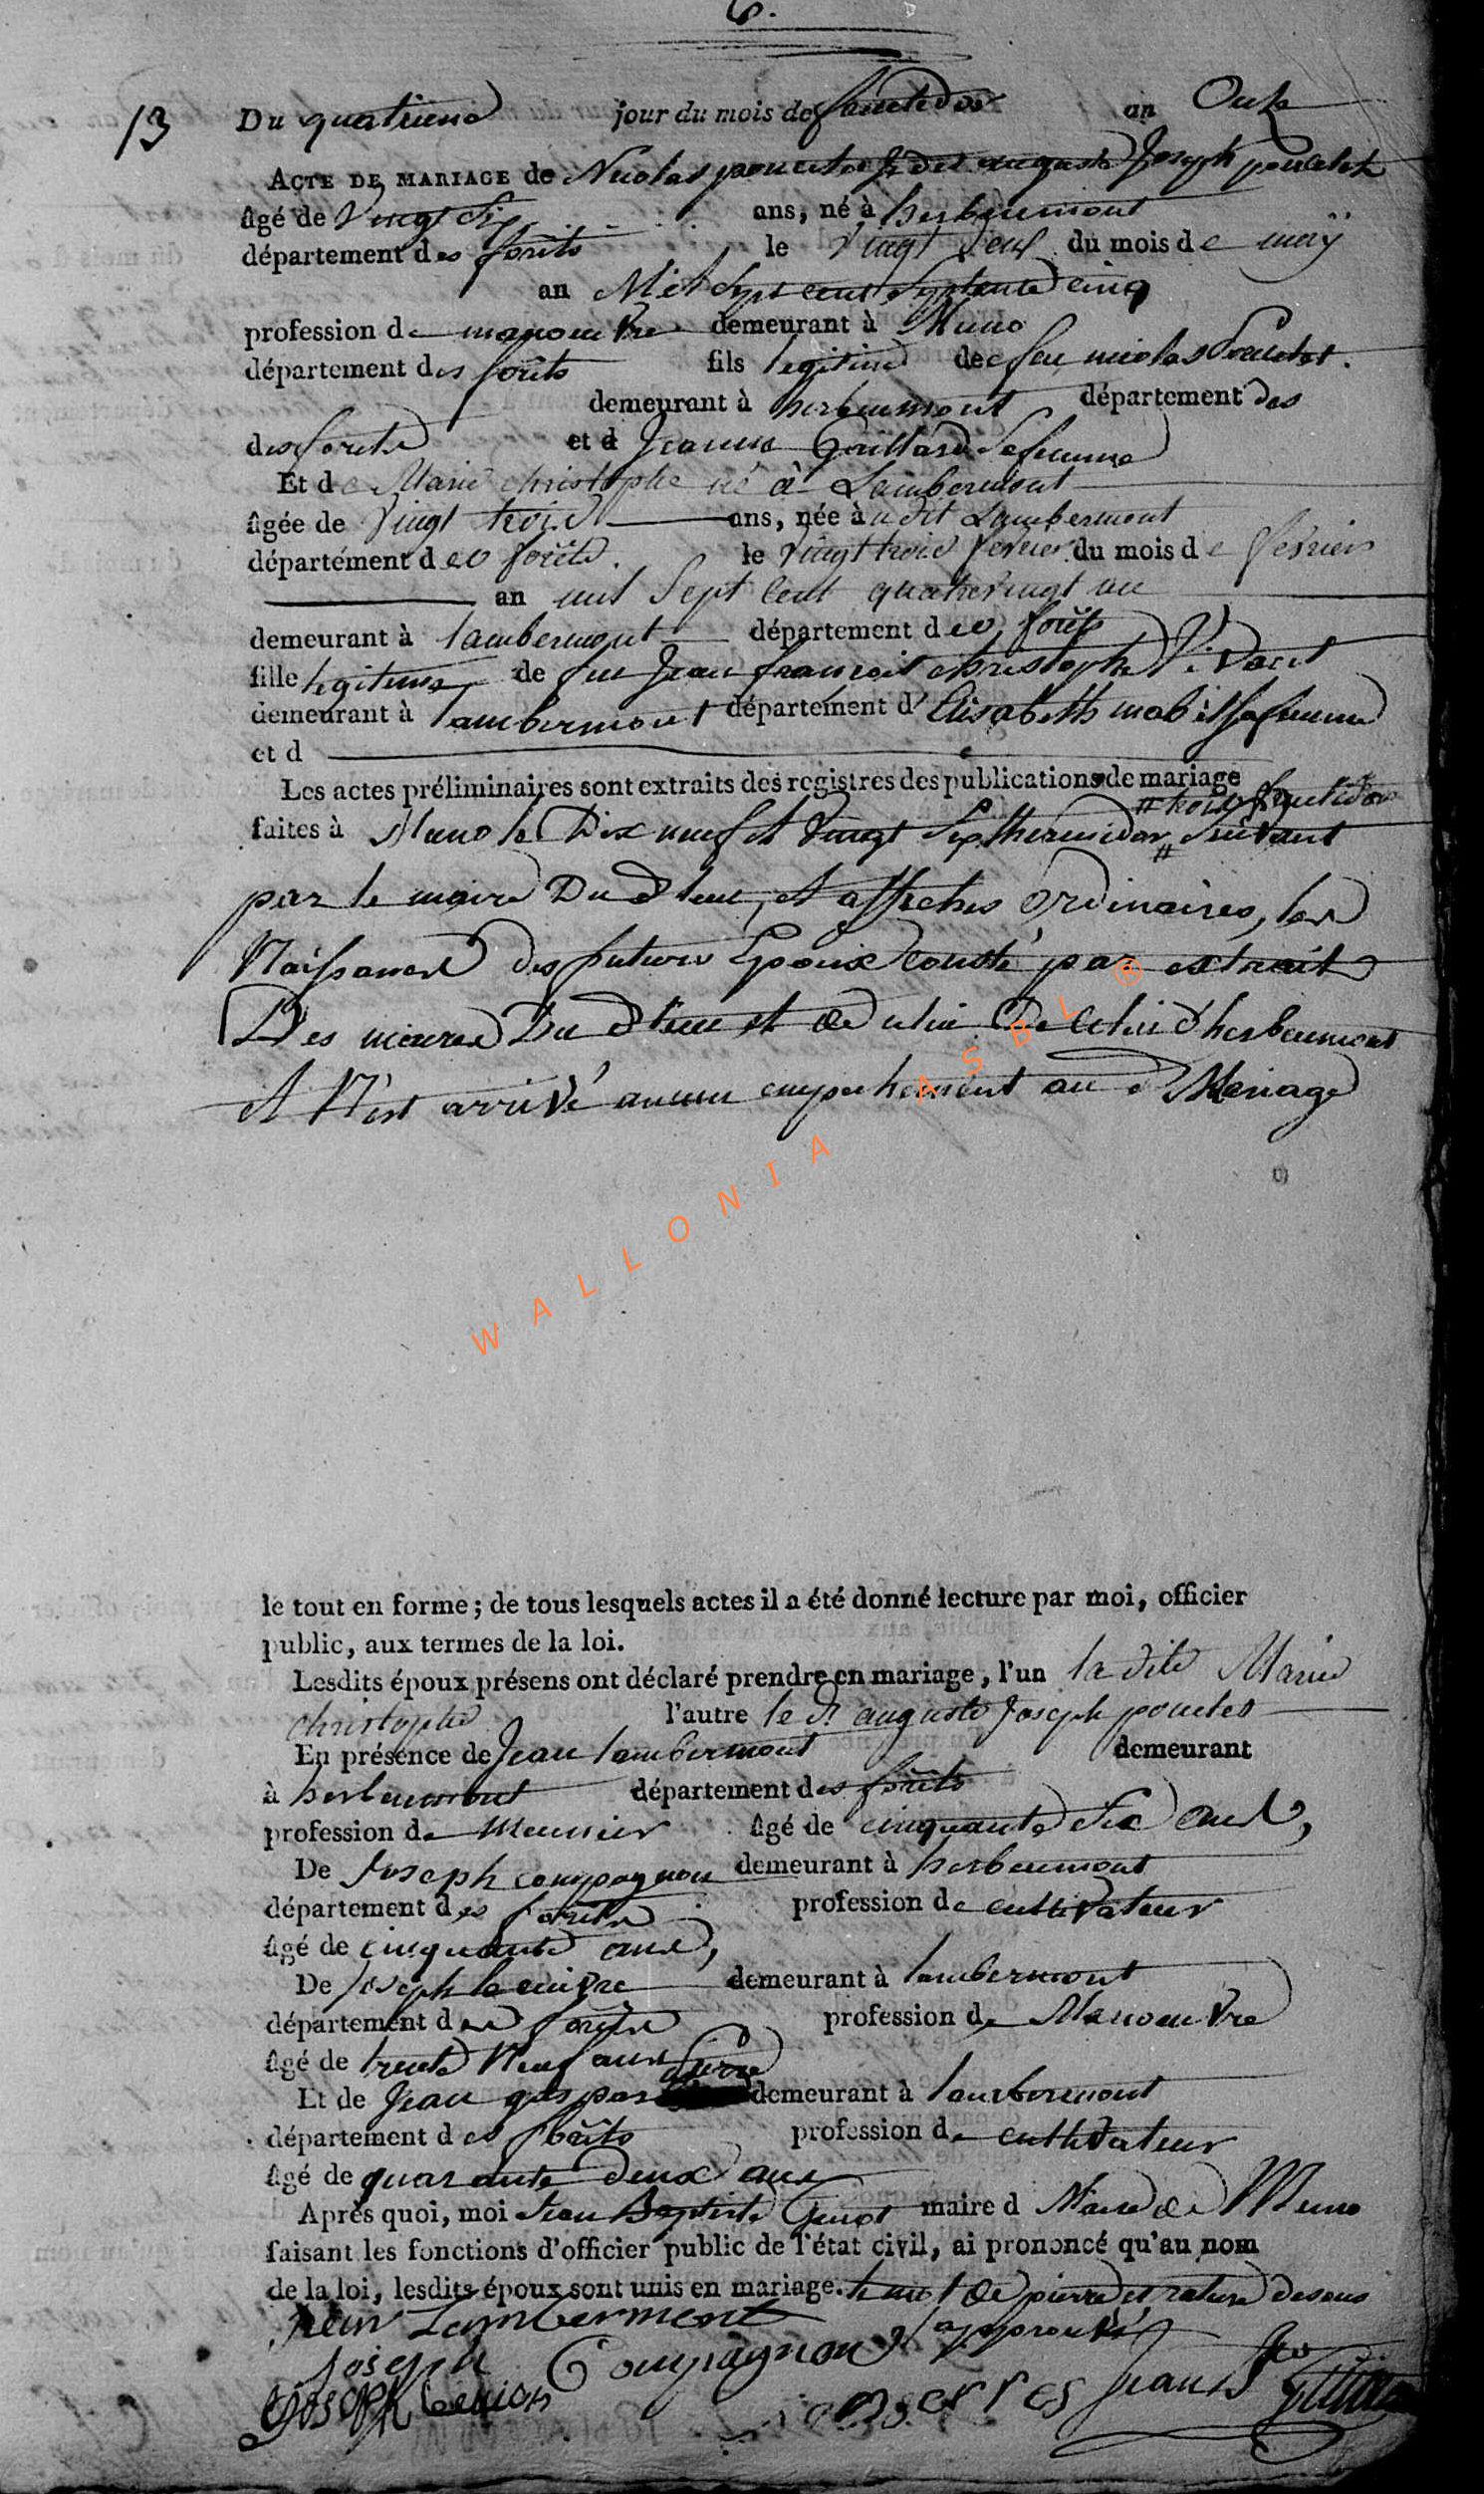 6.
13 Du quatrieme jour du mois de fructidor an Onze
ACTE DE MARIAGE de Nicolas poncelet auguste Joseph poncelet
âgé de Vingt Six ans, né à herbeumont
département des forêts le Vingt neuf du mois de may
an Mil Sept cent Septante cinq
profession de manoeuvre demeurant à Muno
département des forêts fils legitime de feu nicolas Poncelet
demeurant à herbeumont département des
des forets et d Jeanne Goillard Sa femme
Et de Marie christophe né à Lambermont
âgée de Vingt trois ans, née audit Lambermont
département des forêts. le Vingt trois fevrier du mois de fevrier
an mil Sept Cent quatrevingt un
demeurant à lambermont département des forêts
fille legitime de feu Jean françois christophe Vivant
demeurant à lambermont département d' Elisabeth mabil sa femme
et d
Les actes préliminaires sont extraits des registres des publications de mariage
# trois fructidor
faites à Muno le Dix neuf et Vingt Six thermidor # Suivant
par le maire Du d lieu, et affiches Ordinaires, les
Naissances des futures Epoux consté par extrait
Des maires Du d lieu et de celui De Celui d'herbeumont
et N'est arrivé aucun empechement au d Mariage
WALLONIA ASBL ®
le tout en forme; de tous lesquels actes il a été donné lecture par moi, officier
public, aux termes de la loi.
Lesdits époux présens ont déclaré prendre en mariage, l'un la dite Marie
christophe l'autre le dt auguste Joseph poncelet
En présence de Jean lambermont demeurant
à herbeumont département des forêts
profession de Meunier âgé de cinquante Six ans,
De Joseph compagnon demeurant à herbeumont
département des forêts profession de cultivateur
âgé de cinquante ans,
De Joseph demeurant à lambermont
département des forêts profession de Manoeuvre
âgé de trente Neuf ans
pierre
Et de Jean gaspar demeurant à lambermont
département des forêts profession de cultivateur
âgé de quarante Deux ans
Après quoi, moi Jean Baptiste maire d Maire de Muno
faisant les fonctions d'officier public de l'état civil, ai prononcé qu'au nom
de la loi, lesdits époux sont unis en mariage. le mot de pierre et rature desous
Jean Lambermont approuvé
Joseph Compagnon
Joseph Jean